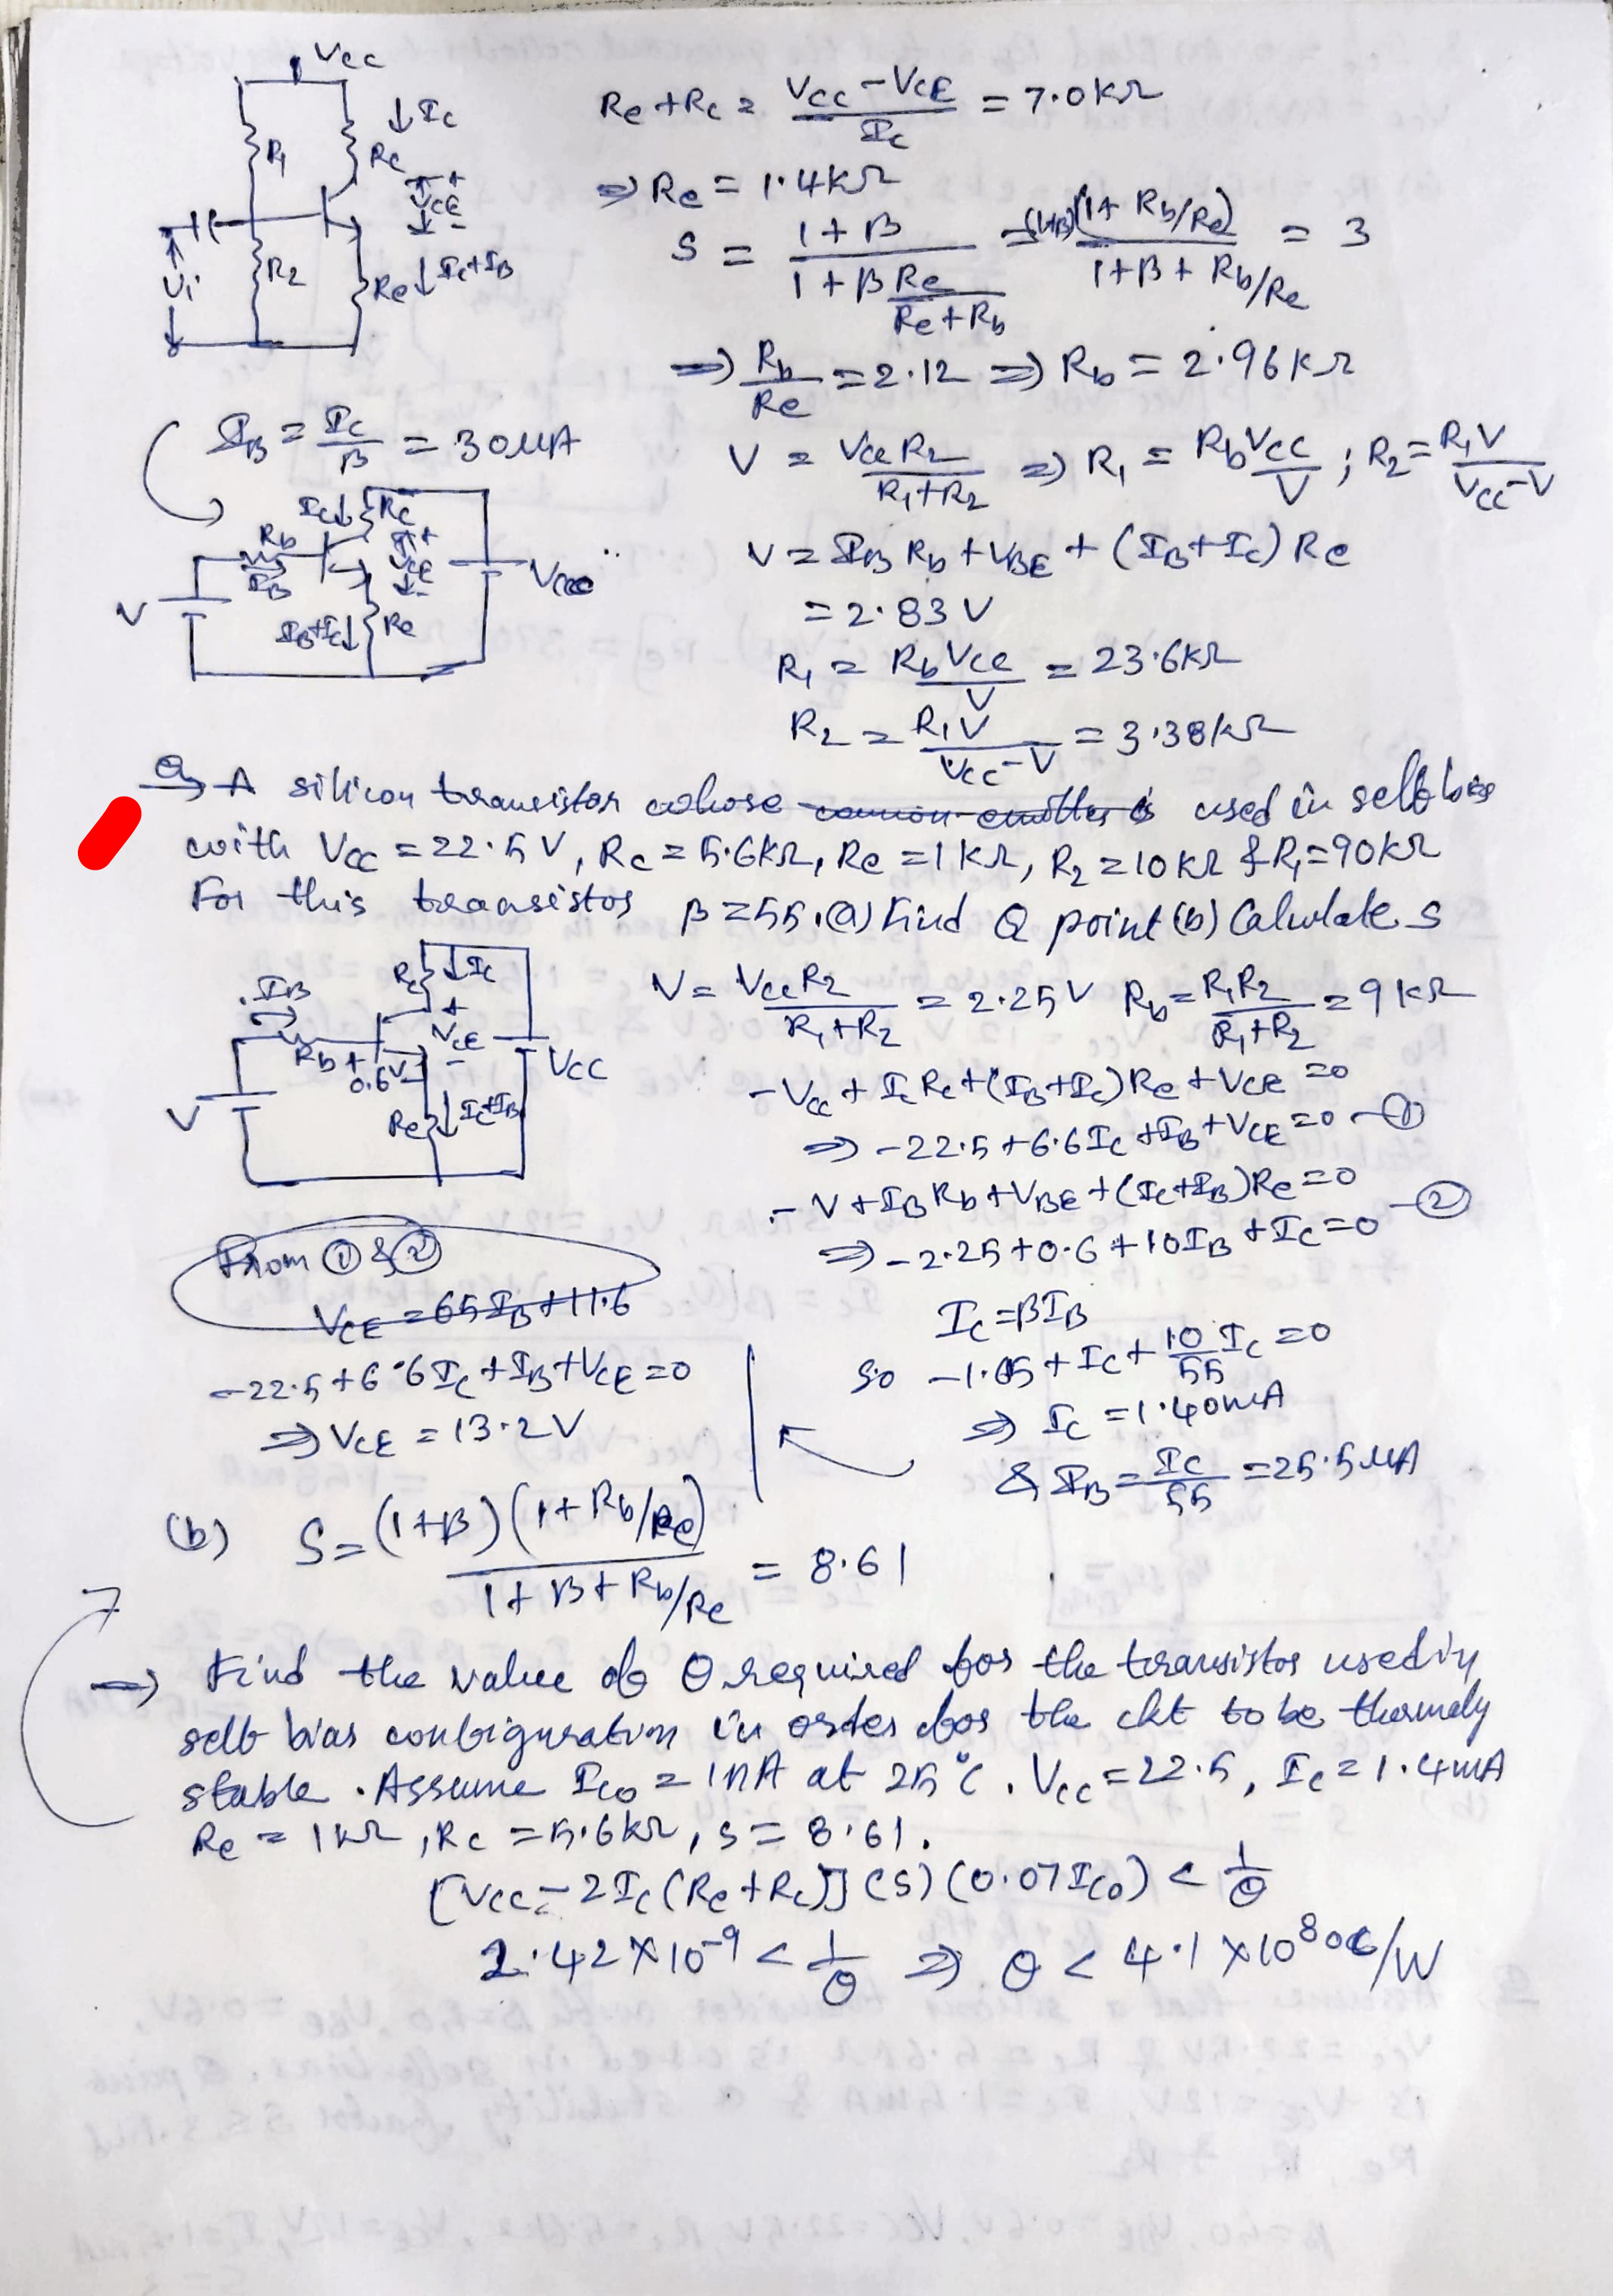 Vcc
↓Ic
R1
Rc
+
VCE
-
R2
Vi
Re ↓Ic+IB
Re+Rc = (Vcc-VCE)/Ic = 7.0kΩ
⇒ Re = 1.4kΩ
S = (1+β)/(1+β Re/(Re+Rb)) = (1+β)(1+Rb/Re)/(1+β+Rb/Re) = 3
⇒ Rb/Re = 2.12 ⇒ Rb = 2.96kΩ
IB = Ic/β = 30μA
V = VccR2/(R1+R2) ⇒ R1 = Rb Vcc/V ; R2 = R1V/(Vcc-V)
Ic↓ Rc
Rb
IB
+
VCE
-
Vcc
V
IB+Ic↓ Re
V = IB Rb + VBE + (IB+Ic) Re
= 2.83 V
R1 = Rb Vcc/V = 23.6kΩ
R2 = R1V/(Vcc-V) = 3.38kΩ
Q→ A silicon transistor whose common emitter is used in self bias
with Vcc = 22.5V, Rc = 5.6kΩ, Re = 1kΩ, R2 = 10kΩ & R1 = 90kΩ
For this transistor β = 55. (a) Find Q point (b) Calculate S
Rc ↓Ic
IB
+
VCE
-
Rb +
0.6V -
Vcc
V
Re ↓Ic+IB
V = VccR2/(R1+R2) = 2.25V Rb = R1R2/(R1+R2) = 9kΩ
-Vcc + IcRc + (IB+Ic)Re + VCE = 0
⇒ -22.5 + 6.6Ic + IB + VCE = 0 -①
-V + IBRb + VBE + (Ic+IB)Re = 0
⇒ -2.25 + 0.6 + 10IB + Ic = 0 -②
From ① & ②
VCE = 65IB + 11.6
Ic = βIB
So -1.65 + Ic + 10/55 Ic = 0
⇒ Ic = 1.40mA
& IB = Ic/55 = 25.5μA
-22.5 + 6.6Ic + IB + VCE = 0
⇒ VCE = 13.2V
(b) S = (1+β)(1+Rb/Re)/(1+β+Rb/Re) = 8.61
→ Find the value of θ required for the transistor used in
self bias configuration in order for the ckt to be thermely
stable. Assume Ico = 1nA at 25°C. Vcc = 22.5, Ic = 1.4mA
Re = 1kΩ, Rc = 5.6kΩ, S = 8.61.
[Vcc - 2Ic(Re+Rc)] (S) (0.07Ico) < 1/θ
2.42×10^-9 < 1/θ ⇒ θ < 4.1×10^8 °C/W